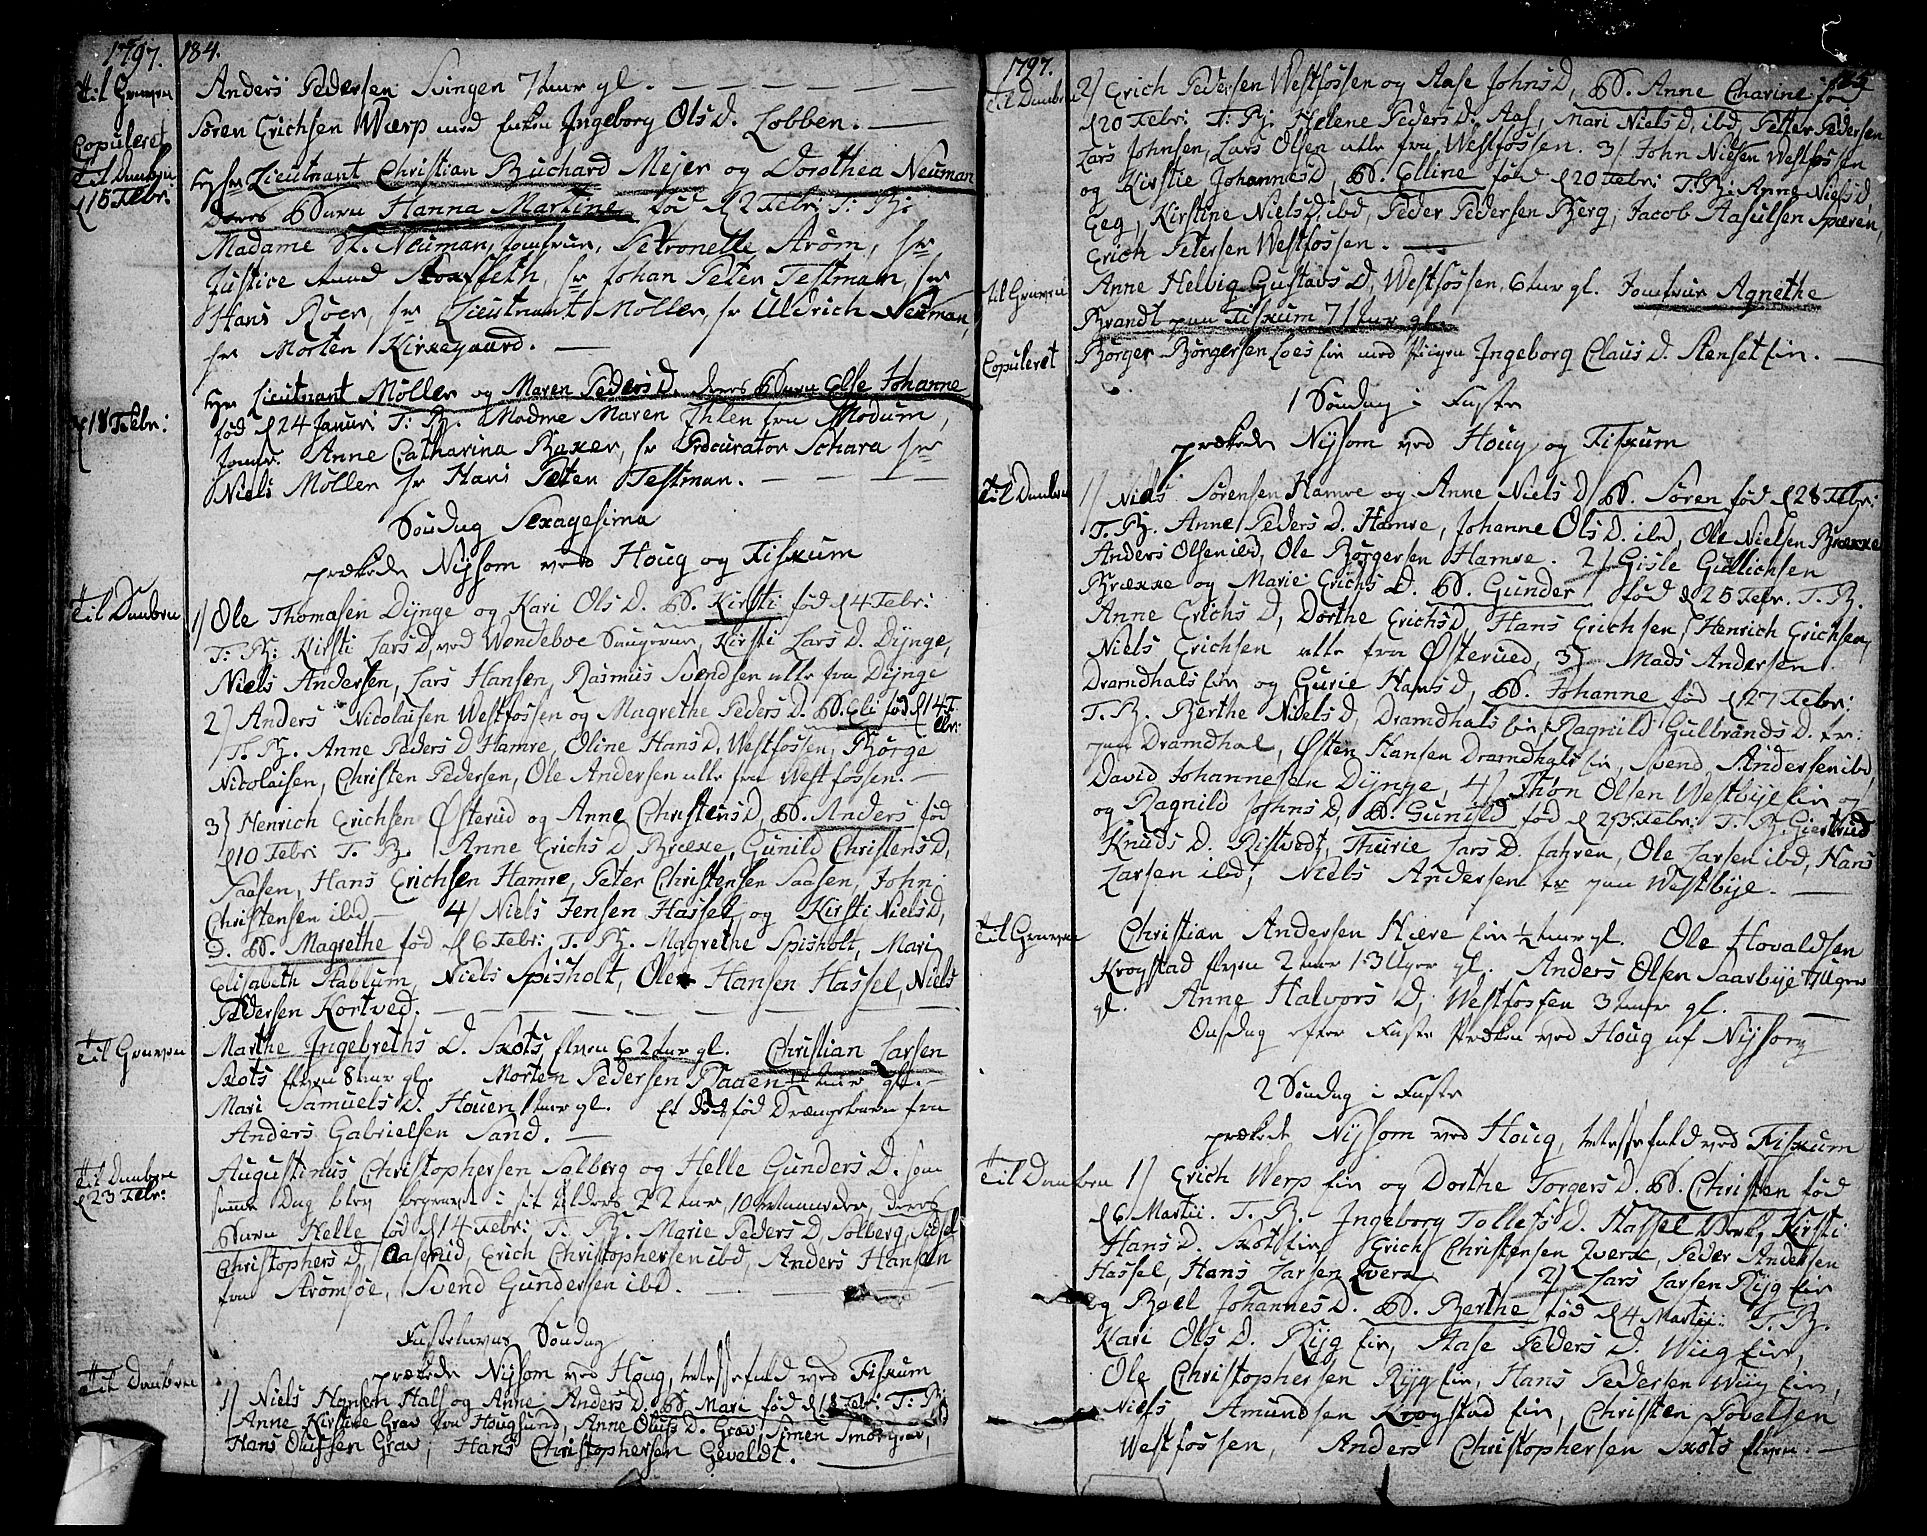 1797. 184.
Til Graven Anders Pedersen Svingen 7 aar gl.
Copuleret Søren Erichsen Wærp med Enken Ingeborg Ols D. Lobben.
Til Daaben Hr Lieutnant Christian Buchard Mejer og Dorothea Neuman
d 15 Febr: deres B Barn Hanna Martine fød d 2 Febr: T: B:
Madame Sl. Neuman, Jomfrue Petronelle Strøm, Hr
Justice Raad Hofseth, Hr Johan Peter Testman, Hr
Hans Roer, Hr Lieutnant Møller, Hr Uldrich Neuman,
Hr Morten Kirkegaard.
Hr Lieutnant Møller og Maren Peders D. deres B Barn Else Johanne
d 18 Febr: fød d 24 Januri T. B. Madme Maren Ihlen fra Modum,
Jomfr. Anne Catharina Baxer, Hr Procurator Schara Hr
Niels Møller Hr Hans Peter Testman.
Søndag Sexagesima
prækede Nyssom ved Houg og Fiskum
Til Daaben 1) Ole Thomasen Dynge og Kari Ols D. B. Kirsti fød d 4 Febr:
T: B: Kirsti Lars D, ved Wendeboe Saugerne, Kirsti Lars D. Dynge,
Niels Andersen, Lars Hansen, Rasmus Svendsen alle fra Dynge
2) Anders Nicolaisen Westfossen og Magrethe Peders D. B. Eli fød d 14 F
ebr:
T. B. Anne Peders D Hamre, Oline Hans D, Westfossen, Børge
Nicolaisen, Christen Pedersen, Ole Andersen alle fra Westfossen.
3) Henrich Erichsen Østerud og Anne Christens D, B. Anders fød
d 10 Febr: T. B. Anne Erichs D Brække, Gunild Christens D,
Saasen, Hans Erichsen Hamre, Peter Christensen Saasen, John
Christensen ibd 4) Niels Jensen Hassel og Kirsti Niels D,
D. B. Magrethe fød d 6 Febr: T. B. Magrethe Spisholt, Mari
Elisabeth Stablum, Niels Spisholt, Ole Hansen Hassel, Niels
Pedersen Kortved.
Til Graven Marthe Ingebreths D. Skots Eyen 62 aar gl. Christian Larsen
Skots Eyen 8 aar gl. Morten Pedersen Haaen aar gl.
Mari Samuels D. Houen 1 aar gl. Et død fød Drængebarn fra
Anders Gabrielsen Sand.
Til Daaben Augustinus Christophersen Solberg og Helle Gunders D. som
d 23 Febr: samme Dag blev begravet i sit Alders 22 aar, 10 Maaneder, deres
B Barn Helle fød d 14 Febr: T. B. Marie Peders D, Solberg, Sidsel
Christophers D, Aaserud, Erich Christophersen ibd, Anders Hansen
fra Strømsøe, Svend Gundersen ibd.
Fastelavns Søndag
prækede Nyssom ved Houg, Messefald ved Fiskum
Til Daaben 1) Niels Hansen Hals og Anne Anders D. B. Mari fød d 18 Febr: T: B:
Anne Kirstine Grav fra Houglund, Anne Oluss D. Grav, Simen Smørgrav,
Hans Olufsen Grav, Hans Christophersen Geveldt.
1797. 185
Til Daaben 2) Erich Pedersen Westfossen og Aase Johns D, B. Anne Charine fød
d 20 Febr: T: B: Helene Peders D. Aas, Mari Niels D, ibd, Petter Pedersen
Lars Johnsen, Lars Olsen alle fra Westfossen. 3) John Nielsen Westfossen
og Kirstie Johannes D, B. Elline fød d 20 Febr: T: B: Anne Niels D,
Eeg, Kirstine Niels D. ibd, Peder Pedersen Berg, Jacob Aasulsen Spæren,
Erich Petersen Westfossen.
Til Graven Anne Helvig Gustavs D, Westfossen, 6 aar gl. Jomfrue Agnethe
Brandt paa Fiskum 71 aar gl.
Copuleret Børger Børgersen Loes Eie med Pigen Ingeborg Claus D. Stenset Eie.
1 Søndag i Faste
prækede Nyssom ved Houg og Fiskum
Til Daaben 1) Niels Sørensen Hamre og Anne Niels D B. Søren fød d 28 Febr:
T. B. Anne Peders D. Hamre, Johanne Ols D. ibd, Ole Nielsen Brække
Anders Olsen ibd, Ole Børgersen Hamre. 2) Gisle Gullichsen
Brække og Marie Erichs D. B. Gunder fød d 25 Febr. T. B.
Anne Erichs D, Dorthe Erichs D, Hans Erichsen, Henrich Erichsen,
Niels Erichsen alle fra Østerud, 3) Mads Andersen
Dramdhals Eie og Gurie Hans D, B. Johanne fød d 27 Febr:
T. B. Berthe Niels D, Dramdhals Eie, Ragnild Gulbrands D.
paa Dramdhal, Østen Hansen Dramdhals Eie, Svend Andersen ibd,
David Johannesen Dynge, 4) Thon Olsen Westbye Eie og
og Ragnild Johns D, B. Gunild fød d 23 Febr: T. B. Giertrud
Knuds D. Ristvedt, Thurie Lars D. Jahren, Ole Larsen ibd, Hans
Larsen ibd, Niels Andersen paa Westbye.
Til Graven Christian Andersen Skiere Eie 1/2 aar gl. Ole Hovaldsen
Krogstad Eyen 2 aar 13 Uger gl. Anders Olsen Saarbye 7 Uger
gl. Anne Halvors D, Westfossen 3 aar gl.
Onsdag efter Faste Præken ved Houg af Nyssom
2 Søndag i Faste
prækede Nyssom ved Houg, Messefald ved Fiskum
Til Daaben 1) Erich Werp Eie og Dorthe Torgers D. B. Christen fød
d 6 Martii. T. B. Ingeborg Tollefs D. Hassel Verk, Kirsti
Hans D. Skots Eie, Erich Christensen Qværk, Peder Andersen
Hassel, Hans Larsen Qværk 2) Lars Larsen Ryg Eie
og Boel Johannes D. B. Berthe fød d 4 Martii: T. B.
Kari Ols D. Ryg Eie, Aase Peders D. Wiig Eie,
Ole Christophersen Ryg Eie, Hans Pedersen Wiig Eie,
Niels Amundsen Krogstad Eie, Christen Povelsen
Westfossen, Anders Christophersen Skots Eyen.